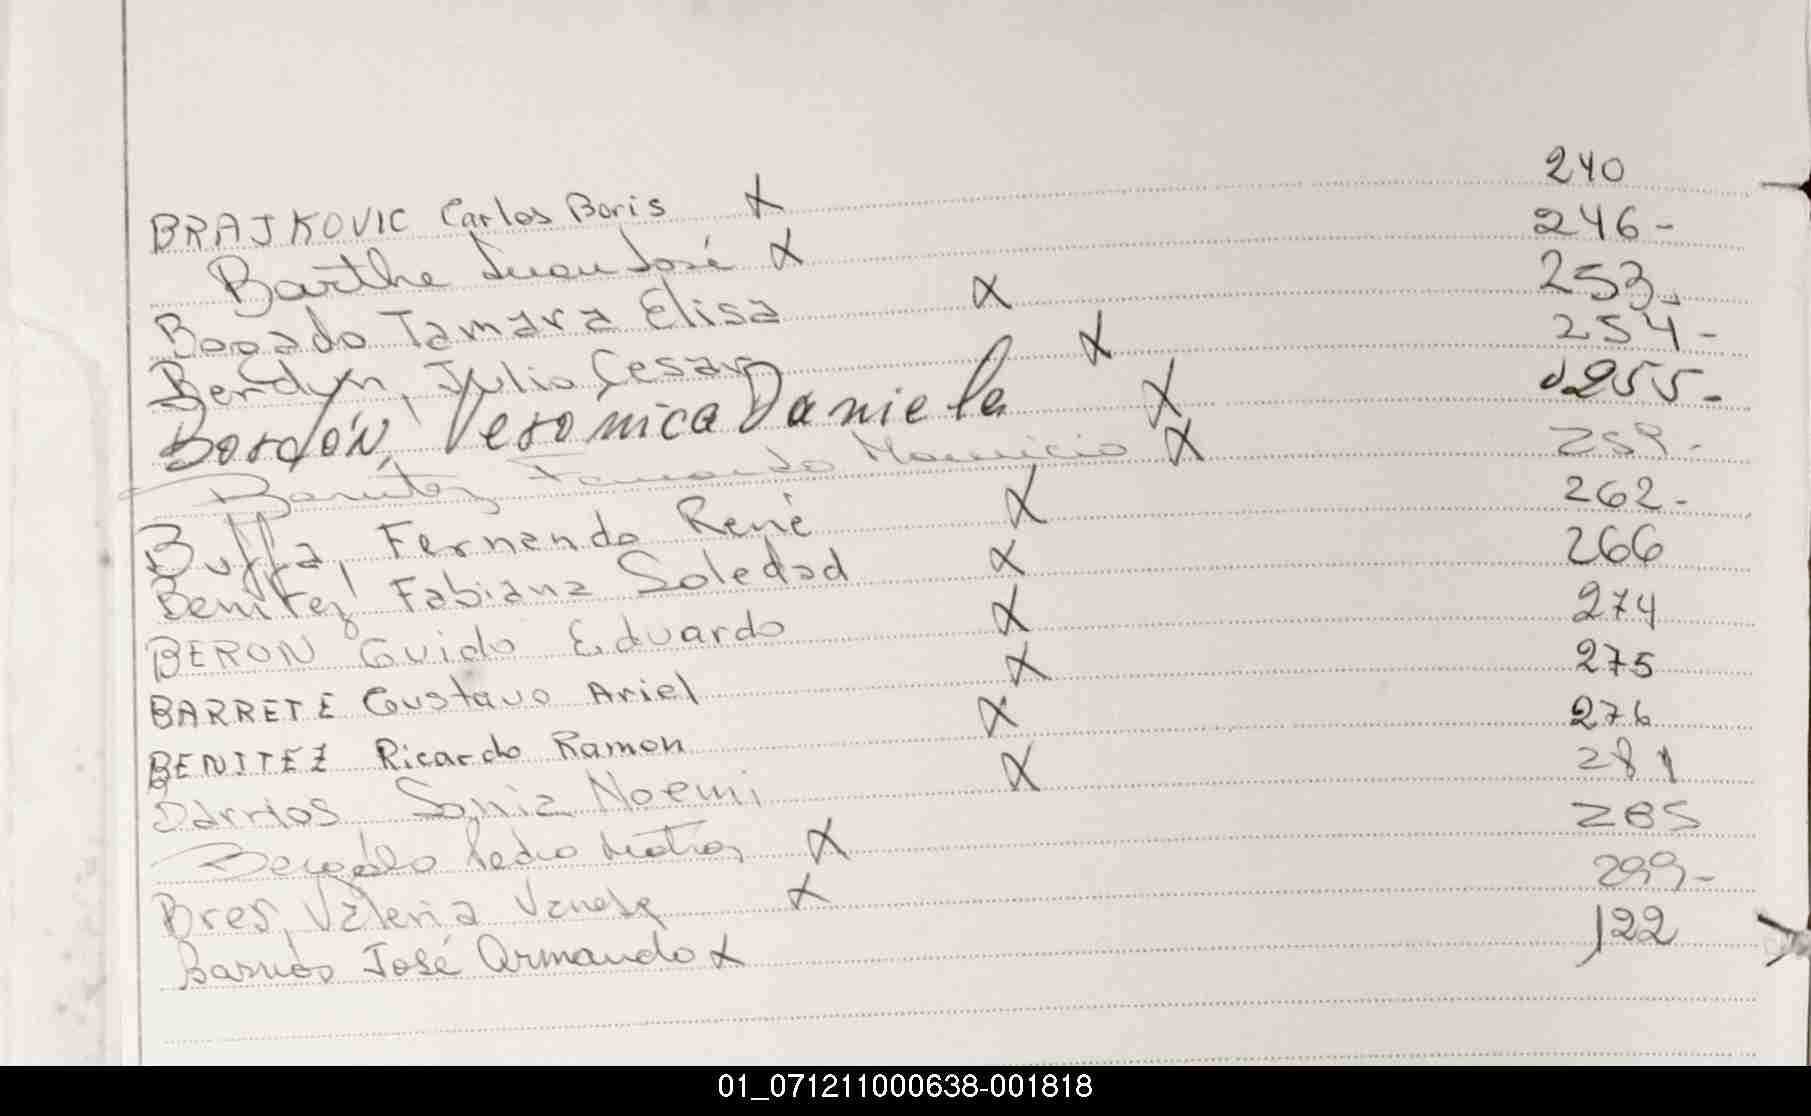 BRAJKOVIC Carlos Boris X 240
Barthe Juan José X 246-
Bogado Tamara Elisa X 253-
Berdyn, Julio Cesar X 254-
Bordón, Veronica Daniela X 255-
Benitez Fernando Mauricio X 259-
Buffa, Fernando René X 262-
Benitez Fabiana Soledad X 266
BERON Guido Eduardo X 274
BARRETE Gustavo Ariel X 275
BENITEZ Ricardo Ramon X 276
Barrios Sonia Noemi X 281
Pedro Matias X 285
Bres, Valeria Vanesa X 299-
Barrios José Armando X 122
01_071211000638-001818